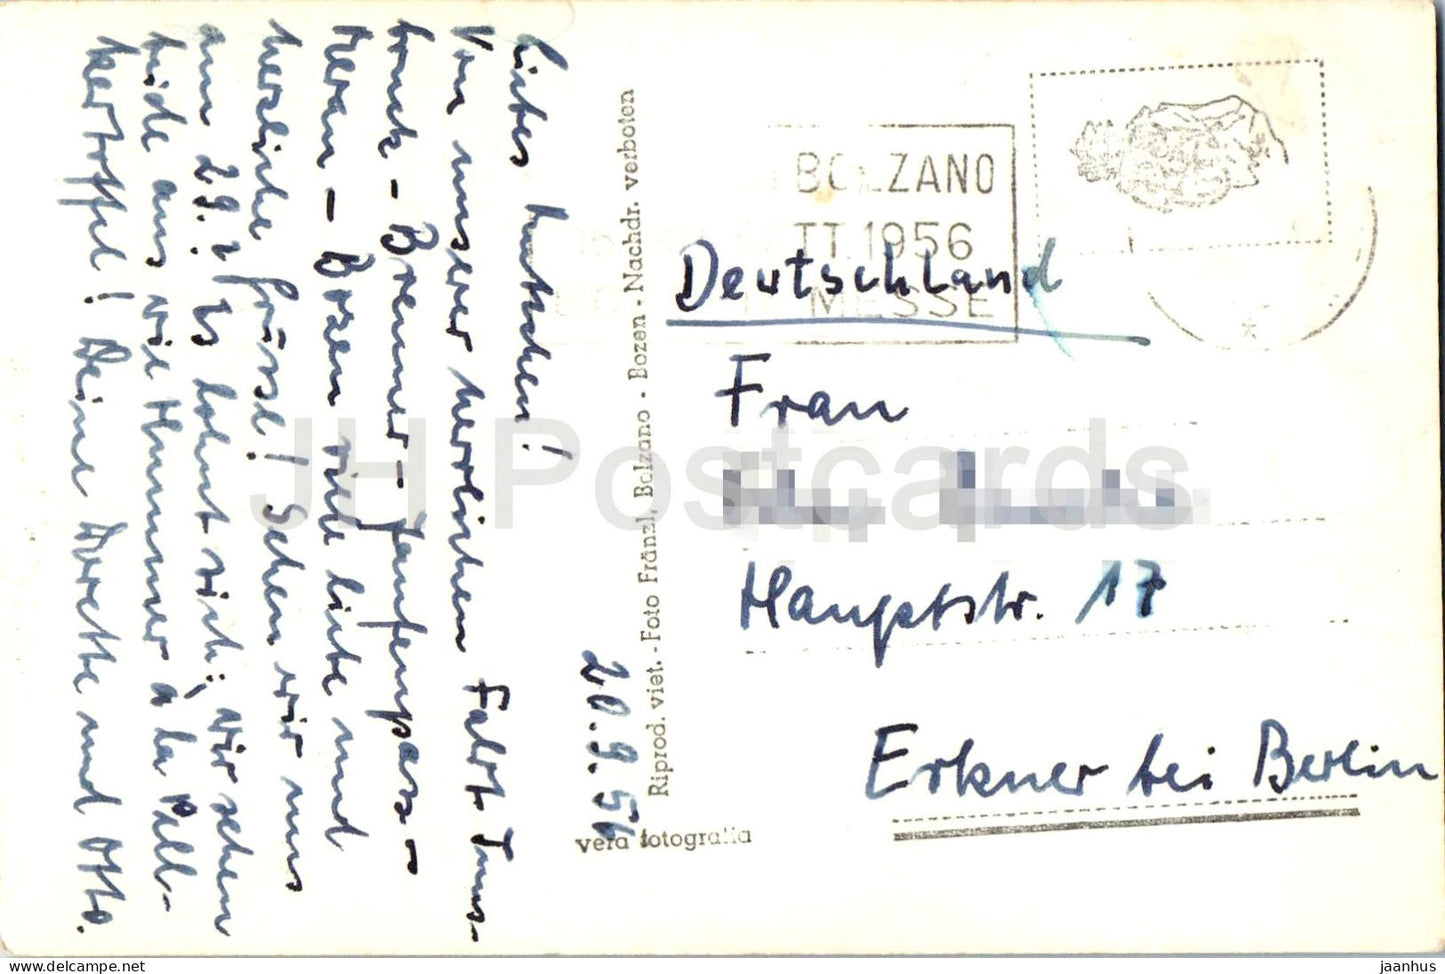 Liebes Mutchen!
Von unserer herrlichen Fahrt Inns-
bruck - Brenner - Jaufenpass -
Meran - Bozen viele liebe und
herzliche Grüsse! Sehen wir uns
am 29.? Es lohnt sich; wir sehen
beide aus wie Hummer à la Pell-
kartoffel! Deine Dorette und Otto.
20.9.56
Riprod. viet. - Foto Fränzl, Bolzano - Bozen - Nachdr. verboten
vera fotografia
BOLZANO
TT.1956
MESSE
Deutschland
Frau
Hauptstr. 17
Erkner bei Berlin
JH Postcards
jaanhus
delcampe.net